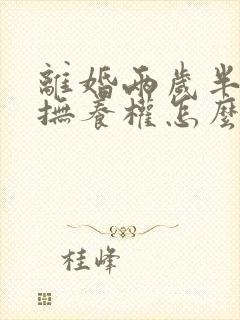 離婚兩歲半
撫養權怎麼
桂峰